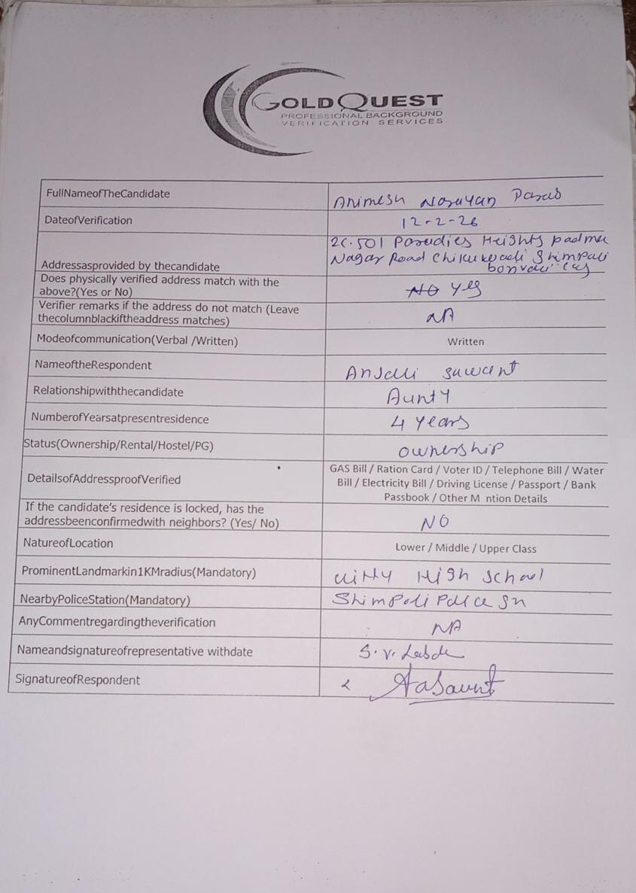 GOLDQUEST
PROFESSIONAL BACKGROUND
VERIFICATION SERVICES
FullNameofTheCandidate Animesh Narayan Parab
DateofVerification 12-2-26
Addressasprovided by thecandidate 2C.501 Paradies Heights padma
Nagar Road Chikuwadi Shimpali
Does physically verified address match with the
above?(Yes or No) NO Yes
Verifier remarks if the address do not match (Leave
thecolumnblackiftheaddress matches) NA
Modeofcommunication(Verbal /Written) Written
NameoftheRespondent Anjali sawant
Relationshipwiththecandidate Aunty
NumberofYearsatpresentresidence 4 Years
Status(Ownership/Rental/Hostel/PG) ownership
DetailsofAddressproofVerified GAS Bill / Ration Card / Voter ID / Telephone Bill / Water
Bill / Electricity Bill / Driving License / Passport / Bank
Passbook / Other M ntion Details
If the candidate's residence is locked, has the
addressbeenconfirmedwith neighbors? (Yes/ No) NO
NatureofLocation Lower / Middle / Upper Class
ProminentLandmarkin1KMradius(Mandatory) High School
NearbyPoliceStation(Mandatory) Shimpoli Police Sn
AnyCommentregardingtheverification NA
Nameandsignatureofrepresentative withdate S.V.
SignatureofRespondent AaSawant